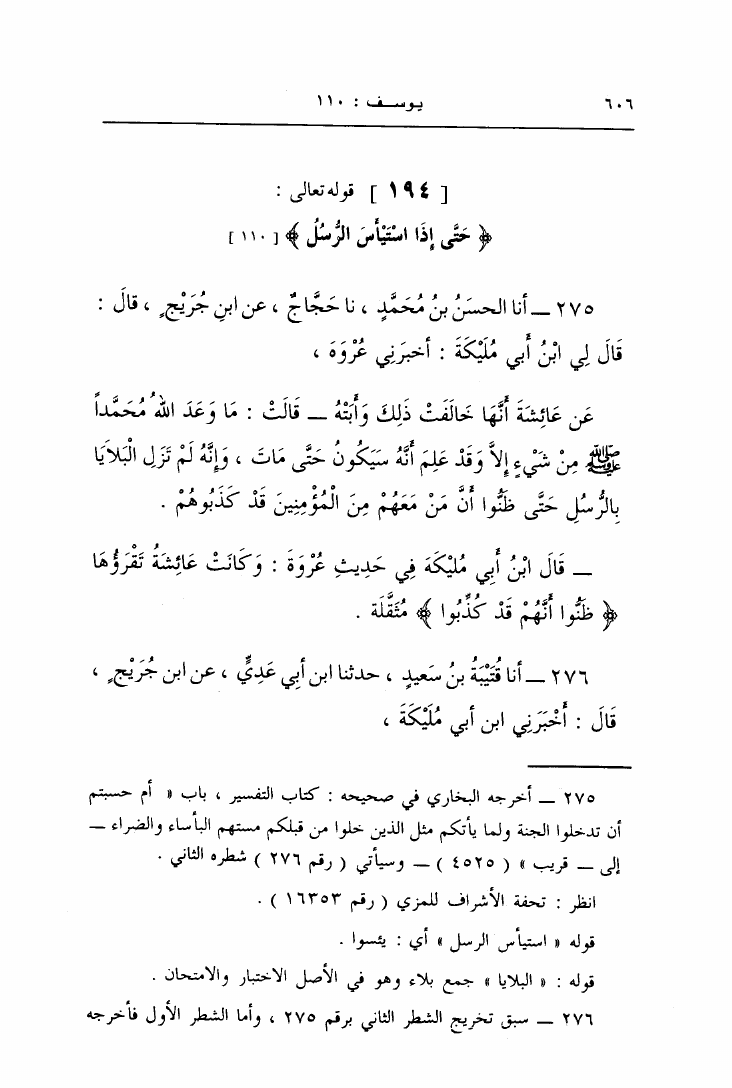 ٦٠٦ يوسف : ١١٠
[ ١٩٤ ] قوله تعالى :
﴿ حَتَّى إِذَا اسْتَيْأَسَ الرُّسُلُ ﴾ [ ١١٠ ]
٢٧٥ ــ أنا الحسَنُ بنُ مُحَمَّدٍ ، نا حَجَّاجٌ ، عن ابنِ جُرَيْجٍ ، قالَ :
قَالَ لِي ابْنُ أبي مُلَيْكَةَ : أخبَرَنِي عُرْوَةَ ،
عَن عَائِشَةَ أَنَّهَا خَالَفَتْ ذَلِكَ وَأَبَتْهُ ــ قَالَتْ : مَا وَعَدَ اللهُ مُحَمَّداً
ﷺ مِنْ شَيْءٍ إِلاَّ وَقَدْ عَلِمَ أَنَّهُ سَيَكُونُ حَتَّى مَاتَ ، وَإِنَّهُ لَمْ تَزَلِ الْبَلاَيَا
بِالرُّسُلِ حَتَّى ظَنُّوا أَنَّ مَنْ مَعَهُمْ مِنَ الْمُؤْمِنِينَ قَدْ كَذَبُوهُمْ .
ــ قَالَ ابْنُ أَبِي مُلَيْكَةَ فِي حَدِيثِ عُرْوَةَ : وَكَانَتْ عَائِشَةُ تَقْرَؤُهَا
﴿ ظَنُّوا أَنَّهُمْ قَدْ كُذِّبُوا ﴾ مُثَقَّلَة .
٢٧٦ ــ أنا قُتَيْبَةُ بنُ سَعيدٍ ، حدثنا ابن أبِي عَدِيٍّ ، عن ابن جُرَيْجٍ ،
قَالَ : أَخْبَرَنِي ابن أبي مُلَيْكَةَ ،
٢٧٥ ــ أخرجه البخاري في صحيحه : كتاب التفسير ، باب « أم حسبتم
أن تدخلوا الجنة ولما يأتكم مثل الذين خلوا من قبلكم مستهم البأساء والضراء ــ
إلى ــ قريب » ( ٤٥٢٥ ) ــ وسيأتي ( رقم ٢٧٦ ) شطره الثاني .
انظر : تحفة الأشراف للمزي ( رقم ١٦٣٥٣ ) .
قوله « استيأس الرسل » أي : يئسوا .
قوله : « البلايا » جمع بلاء وهو في الأصل الاختبار والامتحان .
٢٧٦ ــ سبق تخريج الشطر الثاني برقم ٢٧٥ ، وأما الشطر الأول فأخرجه